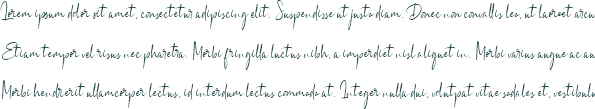 Lorem ipsum dolor sit amet, consectetur adipiscing elit. Suspendisse ut justo diam. Donec non convallis leo, ut laoreet arcu
Etiam tempor vel risus nec pharetra. Morbi fringilla luctus nibh, a imperdiet nisl aliquet in. Morbi varius augue ac au
Morbi hendrerit ullamcorper lectus, id interdum lectus commodo at. Integer nulla dui, volutpat vitae sodales et, vestibulu